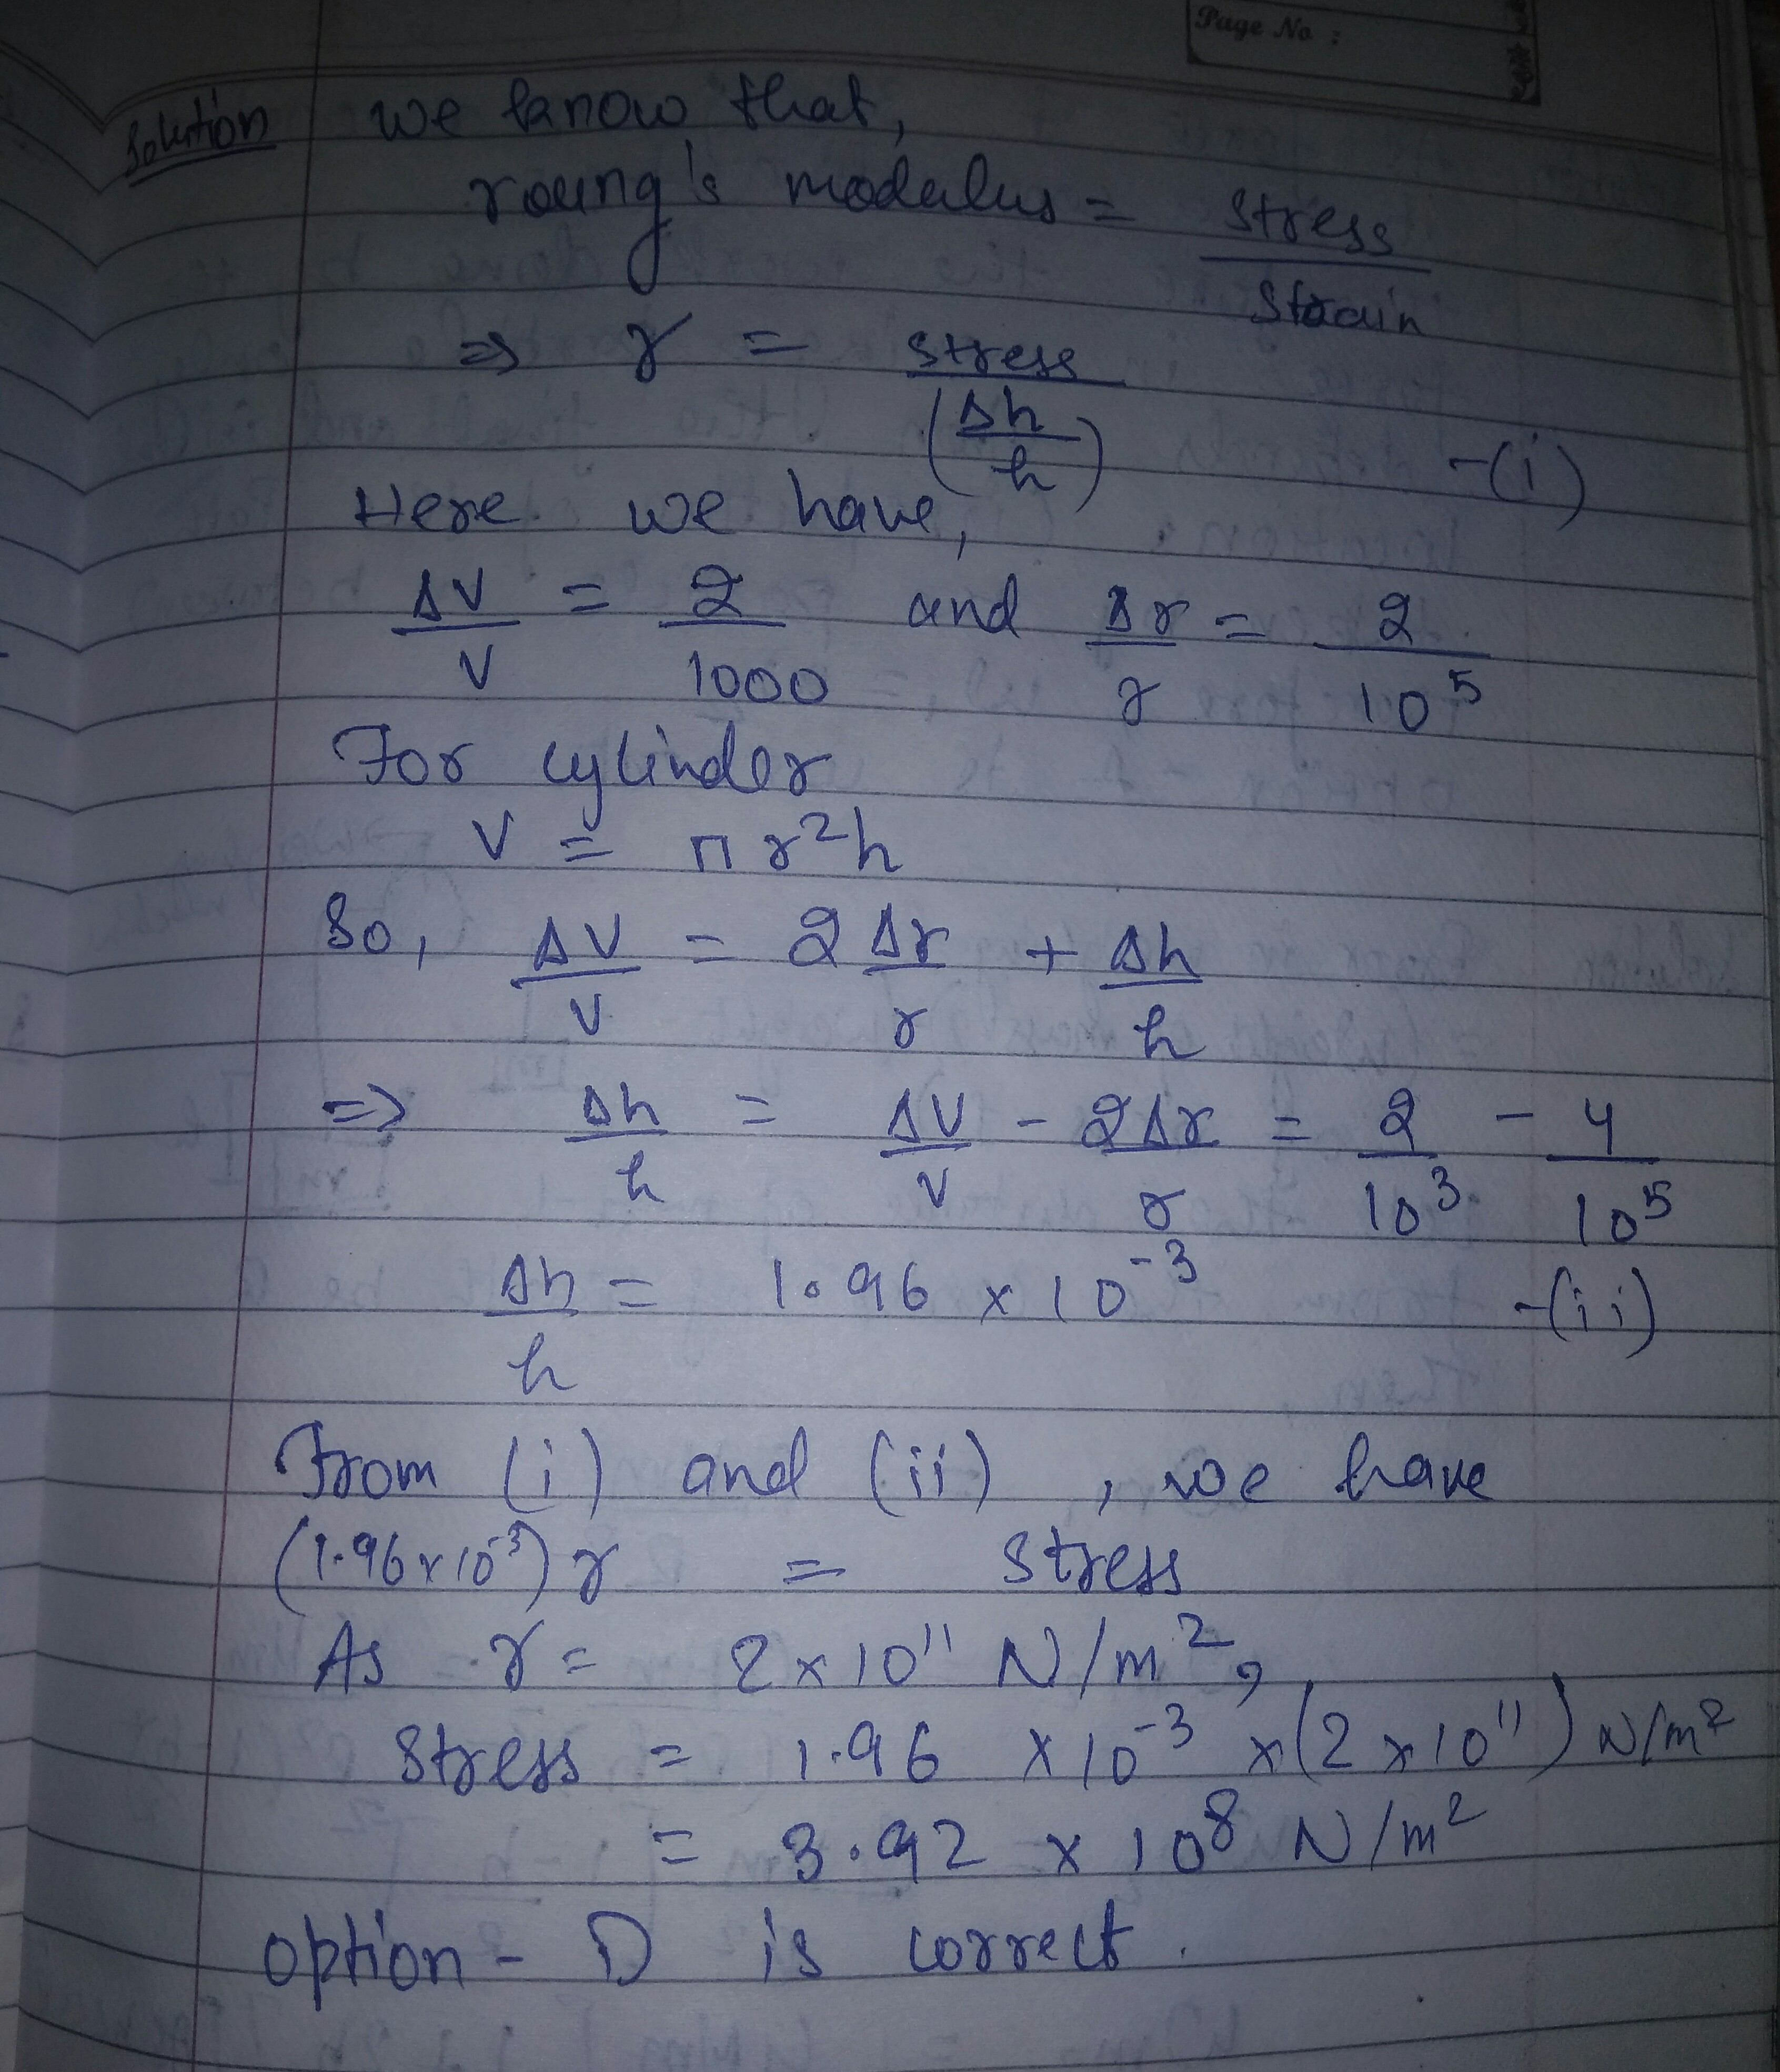 Page No :
Solution we know that,
Young's modulus = stress / strain
⇒ Y = stress / (Δh / h) -(i)
Here we have,
ΔV / V = 2 / 1000 and Δr / r = 2 / 10⁵
For cylinder
V = πr²h
So, ΔV / V = 2 Δr / r + Δh / h
⇒ Δh / h = ΔV / V - 2Δr / r = 2 / 10³ - 4 / 10⁵
Δh / h = 1.96 × 10⁻³ -(ii)
From (i) and (ii) , we have
(1.96 × 10⁻³) Y = stress
As Y = 2 × 10¹¹ N/m²,
stress = 1.96 × 10⁻³ × (2 × 10¹¹) N/m²
= 3.92 × 10⁸ N/m²
option - D is correct.